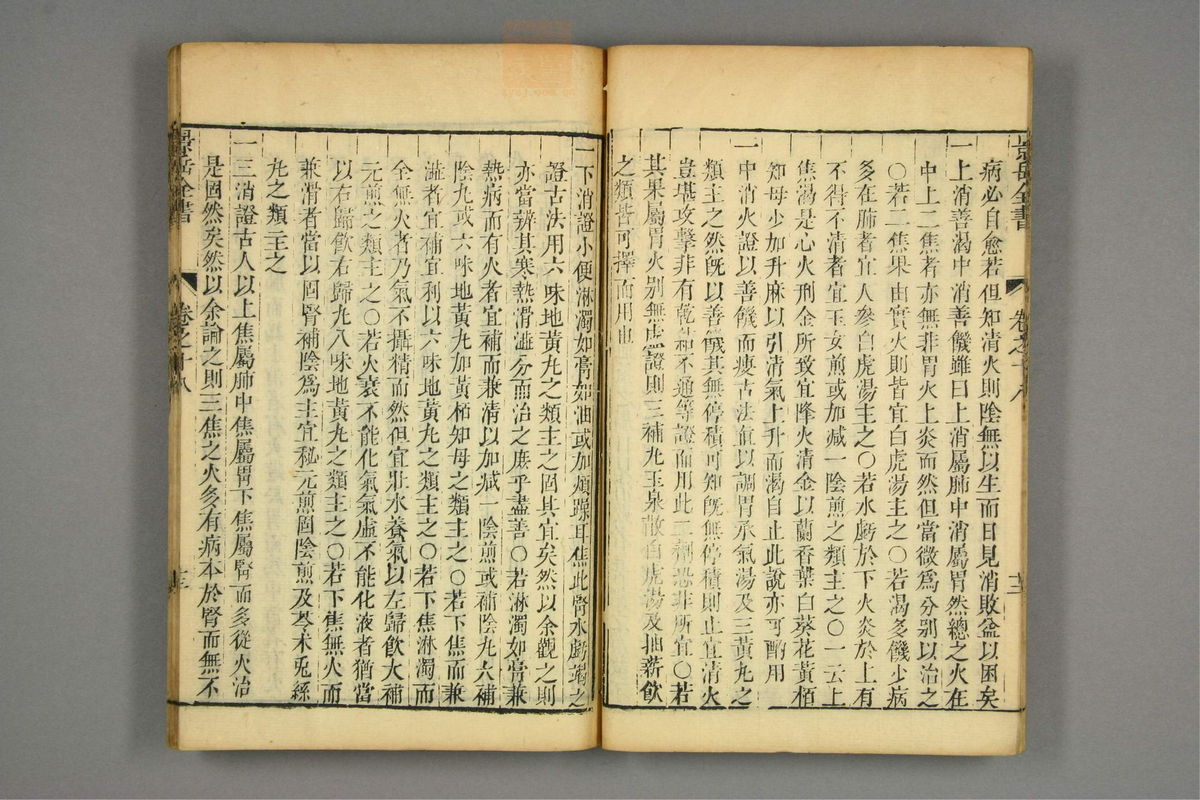 景岳全書 卷之十八 十三
病必自愈若但知清火則陰無以生而日見消敗益以困矣
一上消善渴中消善饑雖曰上消屬肺中消屬胃然總之火在
中上二焦者亦無非胃火上炎而然但當微爲分別以治之
〇若二焦果由實火則皆宜白虎湯主之〇若渴多饑少病
多在肺者宜人參白虎湯主之〇若水虧於下火炎於上有
不得不清者宜玉女煎或加減一陰煎之類主之〇一云上
焦渴是心火刑金所致宜降火清金以蘭香葉白葵花黃栢
知母少加升麻以引清氣上升而渴自止此說亦可酌用
一中消火證以善饑而瘦古法直以調胃承氣湯及三黃丸之
類主之然旣以善饑其無停積可知旣無停積則止宜清火
豈堪攻擊非有乾結不通等證而用此二劑恐非所宜〇若
其果屬胃火別無虛證則三補丸玉泉散白虎湯及抽薪飲
之類皆可擇而用也
一下消證小便淋濁如膏如油或加煩躁耳焦此腎水虧竭之
證古法用六味地黃丸之類主之固其宜矣然以余觀之則
亦當辨其寒熱滑濇分而治之庶乎盡善〇若淋濁如膏兼
熱病而有火者宜補而兼清以加減一陰煎或補陰丸大補
陰丸或六味地黃丸加黃栢知母之類主之〇若下焦而兼
濇者宜補宜利以六味地黃丸之類主之〇若下焦淋濁而
全無火者乃氣不攝精而然但宜壯水養氣以左歸飲大補
元煎之類主之〇若火衰不能化氣氣虛不能化液者猶當
以右歸飲右歸丸八味地黃丸之類主之〇若下焦無火而
兼滑者當以固腎補陰爲主宜秘元煎固陰煎及苓朮兎絲
丸之類主之
一三消證古人以上焦屬肺中焦屬胃下焦屬腎而多從火治
是固然矣然以余論之則三焦之火多有病本於腎而無不
景岳全書 卷之十八 十三